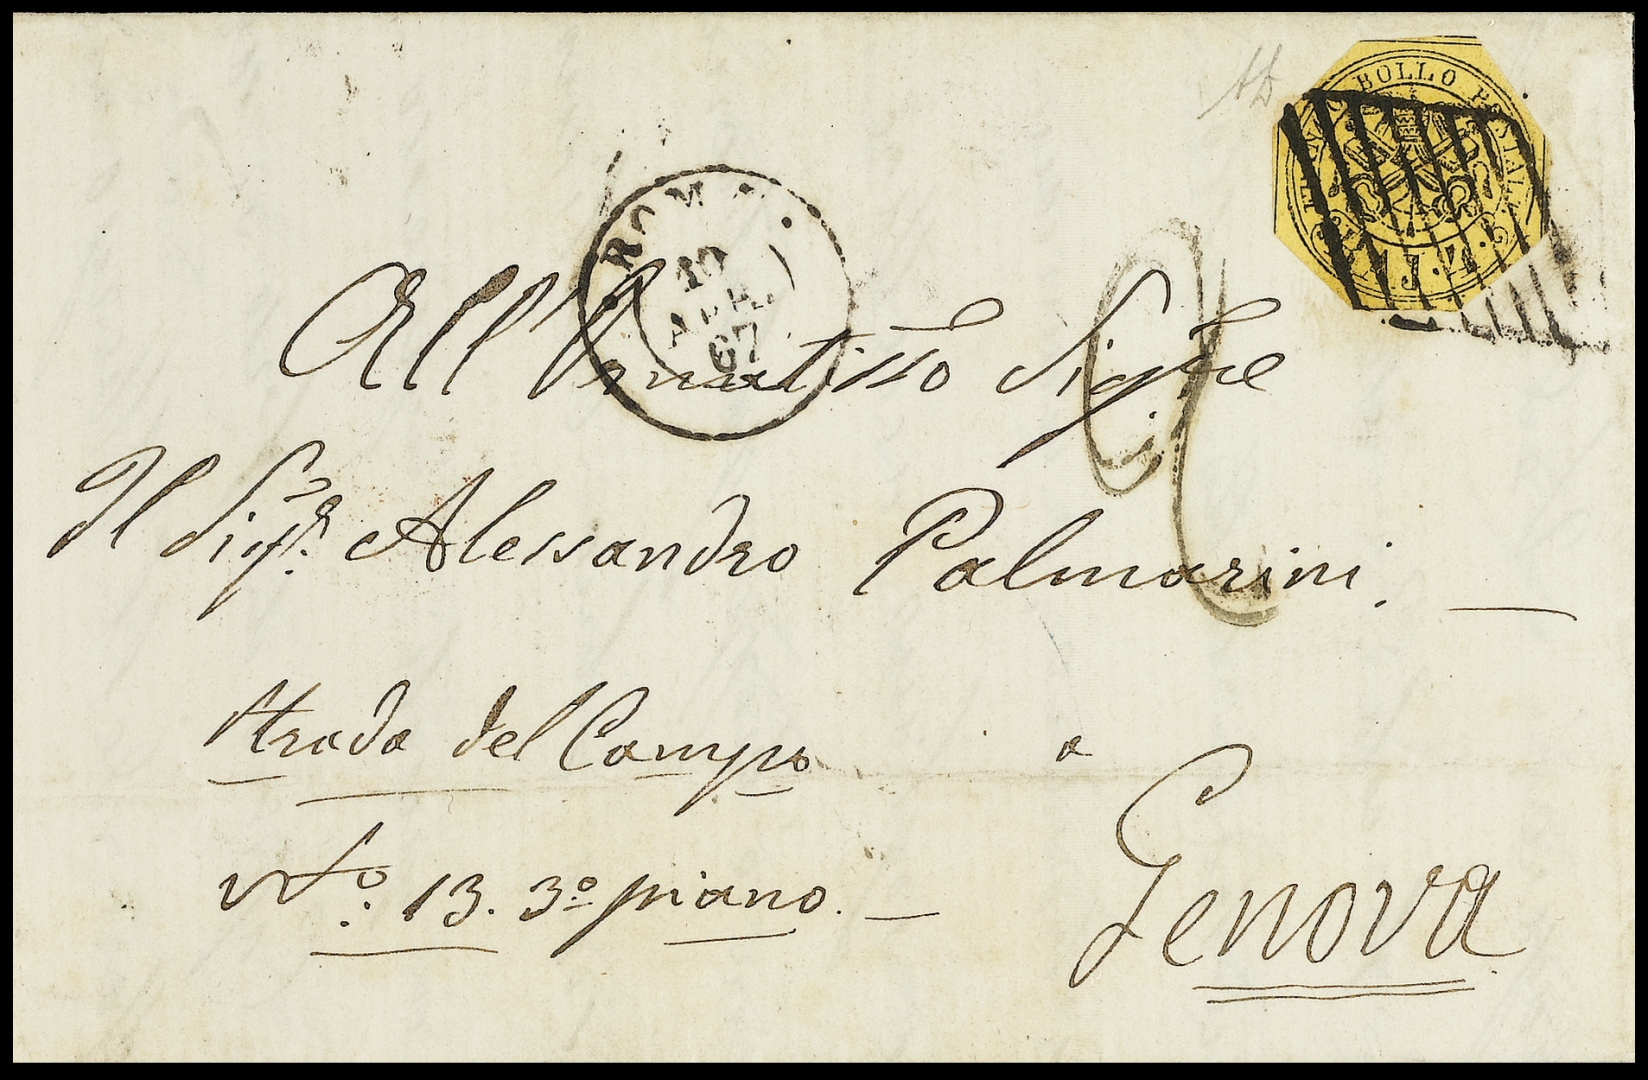 FRANCO BOLLO POSTALE
ROMA
10
APR.
67
All' Ornatisso Sigre
Il Sigr. Alessandro Palmarini.
Strada del Campo a
No: 13. 3o piano. Genova